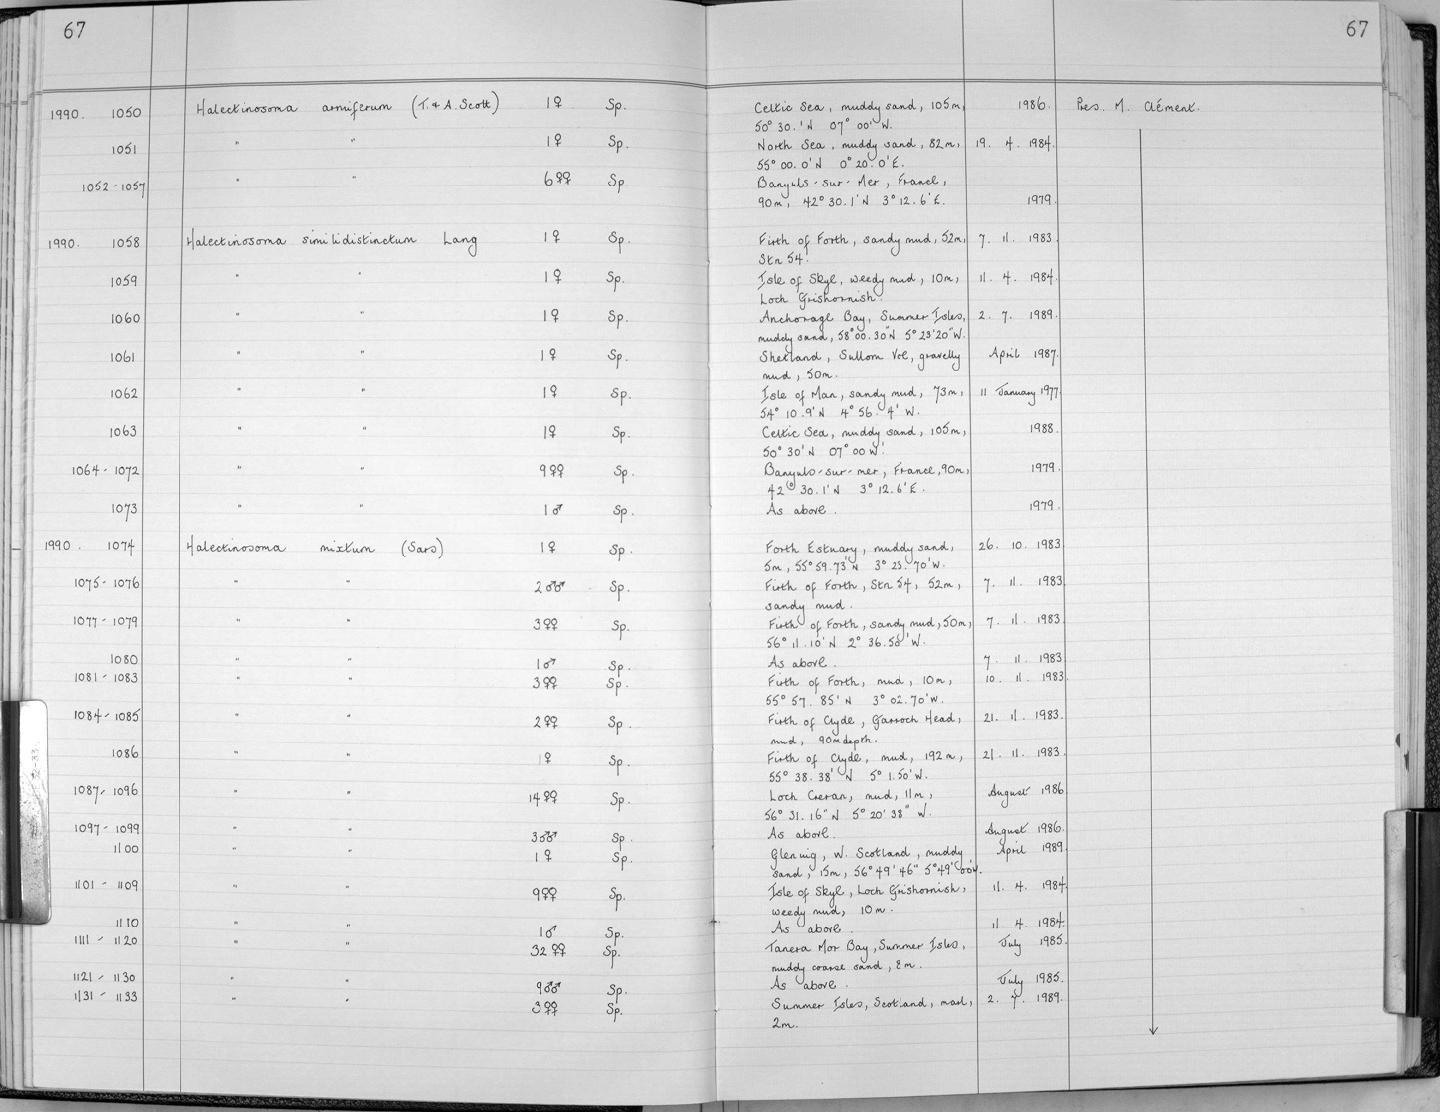 67
67
1990. 1050 Halectinosoma armiferum (T. & A. Scott) 1♀ Sp. Celtic Sea, muddy sand, 105m, 1986. Pres. M. Clément.
50° 30.'N 07° 00' W.
1051 " " 1♀ Sp. North Sea, muddy sand, 82m, 19. 4. 1984.
55° 00.0'N 0° 20.0'E.
1052-1057 " " 6♀♀ Sp Banyuls-sur-Mer, France,
90m, 42° 30.1'N 3° 12.6'E. 1979.
1990. 1058 Halectinosoma similidistinctum Lang 1♀ Sp. Firth of Forth, sandy mud, 52m, 7. 11. 1983
Stn 54.
1059 " " 1♀ Sp. Isle of Skye, weedy mud, 10m, 11. 4. 1984.
Loch Grishornish.
1060 " " 1♀ Sp. Anchorage Bay, Summer Isles, 2. 7. 1989.
muddy sand, 58°00.30"N 5° 23'20"W.
1061 " " 1♀ Sp. Shetland, Sullom Voe, gravelly April 1987.
mud, 50m.
1062 " " 1♀ Sp. Isle of Man, sandy mud, 73m, 11 January 1977.
54° 10.9'N 4° 56.4' W.
1063 " " 1♀ Sp. Celtic Sea, muddy sand, 105m, 1988.
50° 30'N 07° 00 W.'
1064-1072 " " 9♀♀ Sp. Banyuls-sur-mer, France, 90m, 1979.
42° 30.1'N 3° 12.6'E.
1073 " " 1♂ Sp. As above. 1979.
1990. 1074 Halectinosoma mixtum (Sars) 1♀ Sp. Forth Estuary, muddy sand, 26. 10. 1983
5m, 55° 59.73'N 3° 23.70'W.
1075-1076 " " 2♂♂ Sp. Firth of Forth, Stn 54, 52m, 7. 11. 1983
sandy mud.
1077-1079 " " 3♀♀ Sp. Firth of Forth, sandy mud, 50m, 7. 11. 1983
56° 11.10'N 2° 36.58'W.
1080 " " 1♂ Sp. As above. 7. 11. 1983
1081-1083 " " 3♀♀ Sp. Firth of Forth, mud, 10m, 10. 11. 1983
55° 57.85'N 3° 02.70'W.
1084-1085 " " 2♀♀ Sp. Firth of Clyde, Garroch Head, 21. 11. 1983.
mud, 90m depth.
1086 " " 1♀ Sp. Firth of Clyde, mud, 192m, 21. 11. 1983
55° 38.38' N 5° 1.50'W.
1087-1096 " " 14♀♀ Sp. Loch Creran, mud, 11m, August 1986
56° 31.16"N 5° 20' 38" W.
1097-1099 " " 3♂♂ Sp. As above. August 1986.
1100 " " 1♀ Sp. Glenuig, W. Scotland, muddy April 1989.
sand, 15m, 56° 49' 46" 5° 49' 00"W.
1101-1109 " " 9♀♀ Sp. Isle of Skye, Loch Grishornish, 11. 4. 1984
weedy mud, 10m.
1110 " " 1♂ Sp. As above. 11 4. 1984.
1111-1120 " " 32♀♀ Sp. Tanera Mor Bay, Summer Isles, July 1985.
muddy coarse sand, 8m.
1121-1130 " " 9♂♂ Sp. As above. July 1985.
1131-1133 " " 3♀♀ Sp. Summer Isles, Scotland, marl, 2. 7. 1989.
2m.